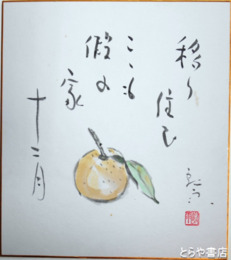 移り
住む
ここも
仮の
家
十二月
とらや書店